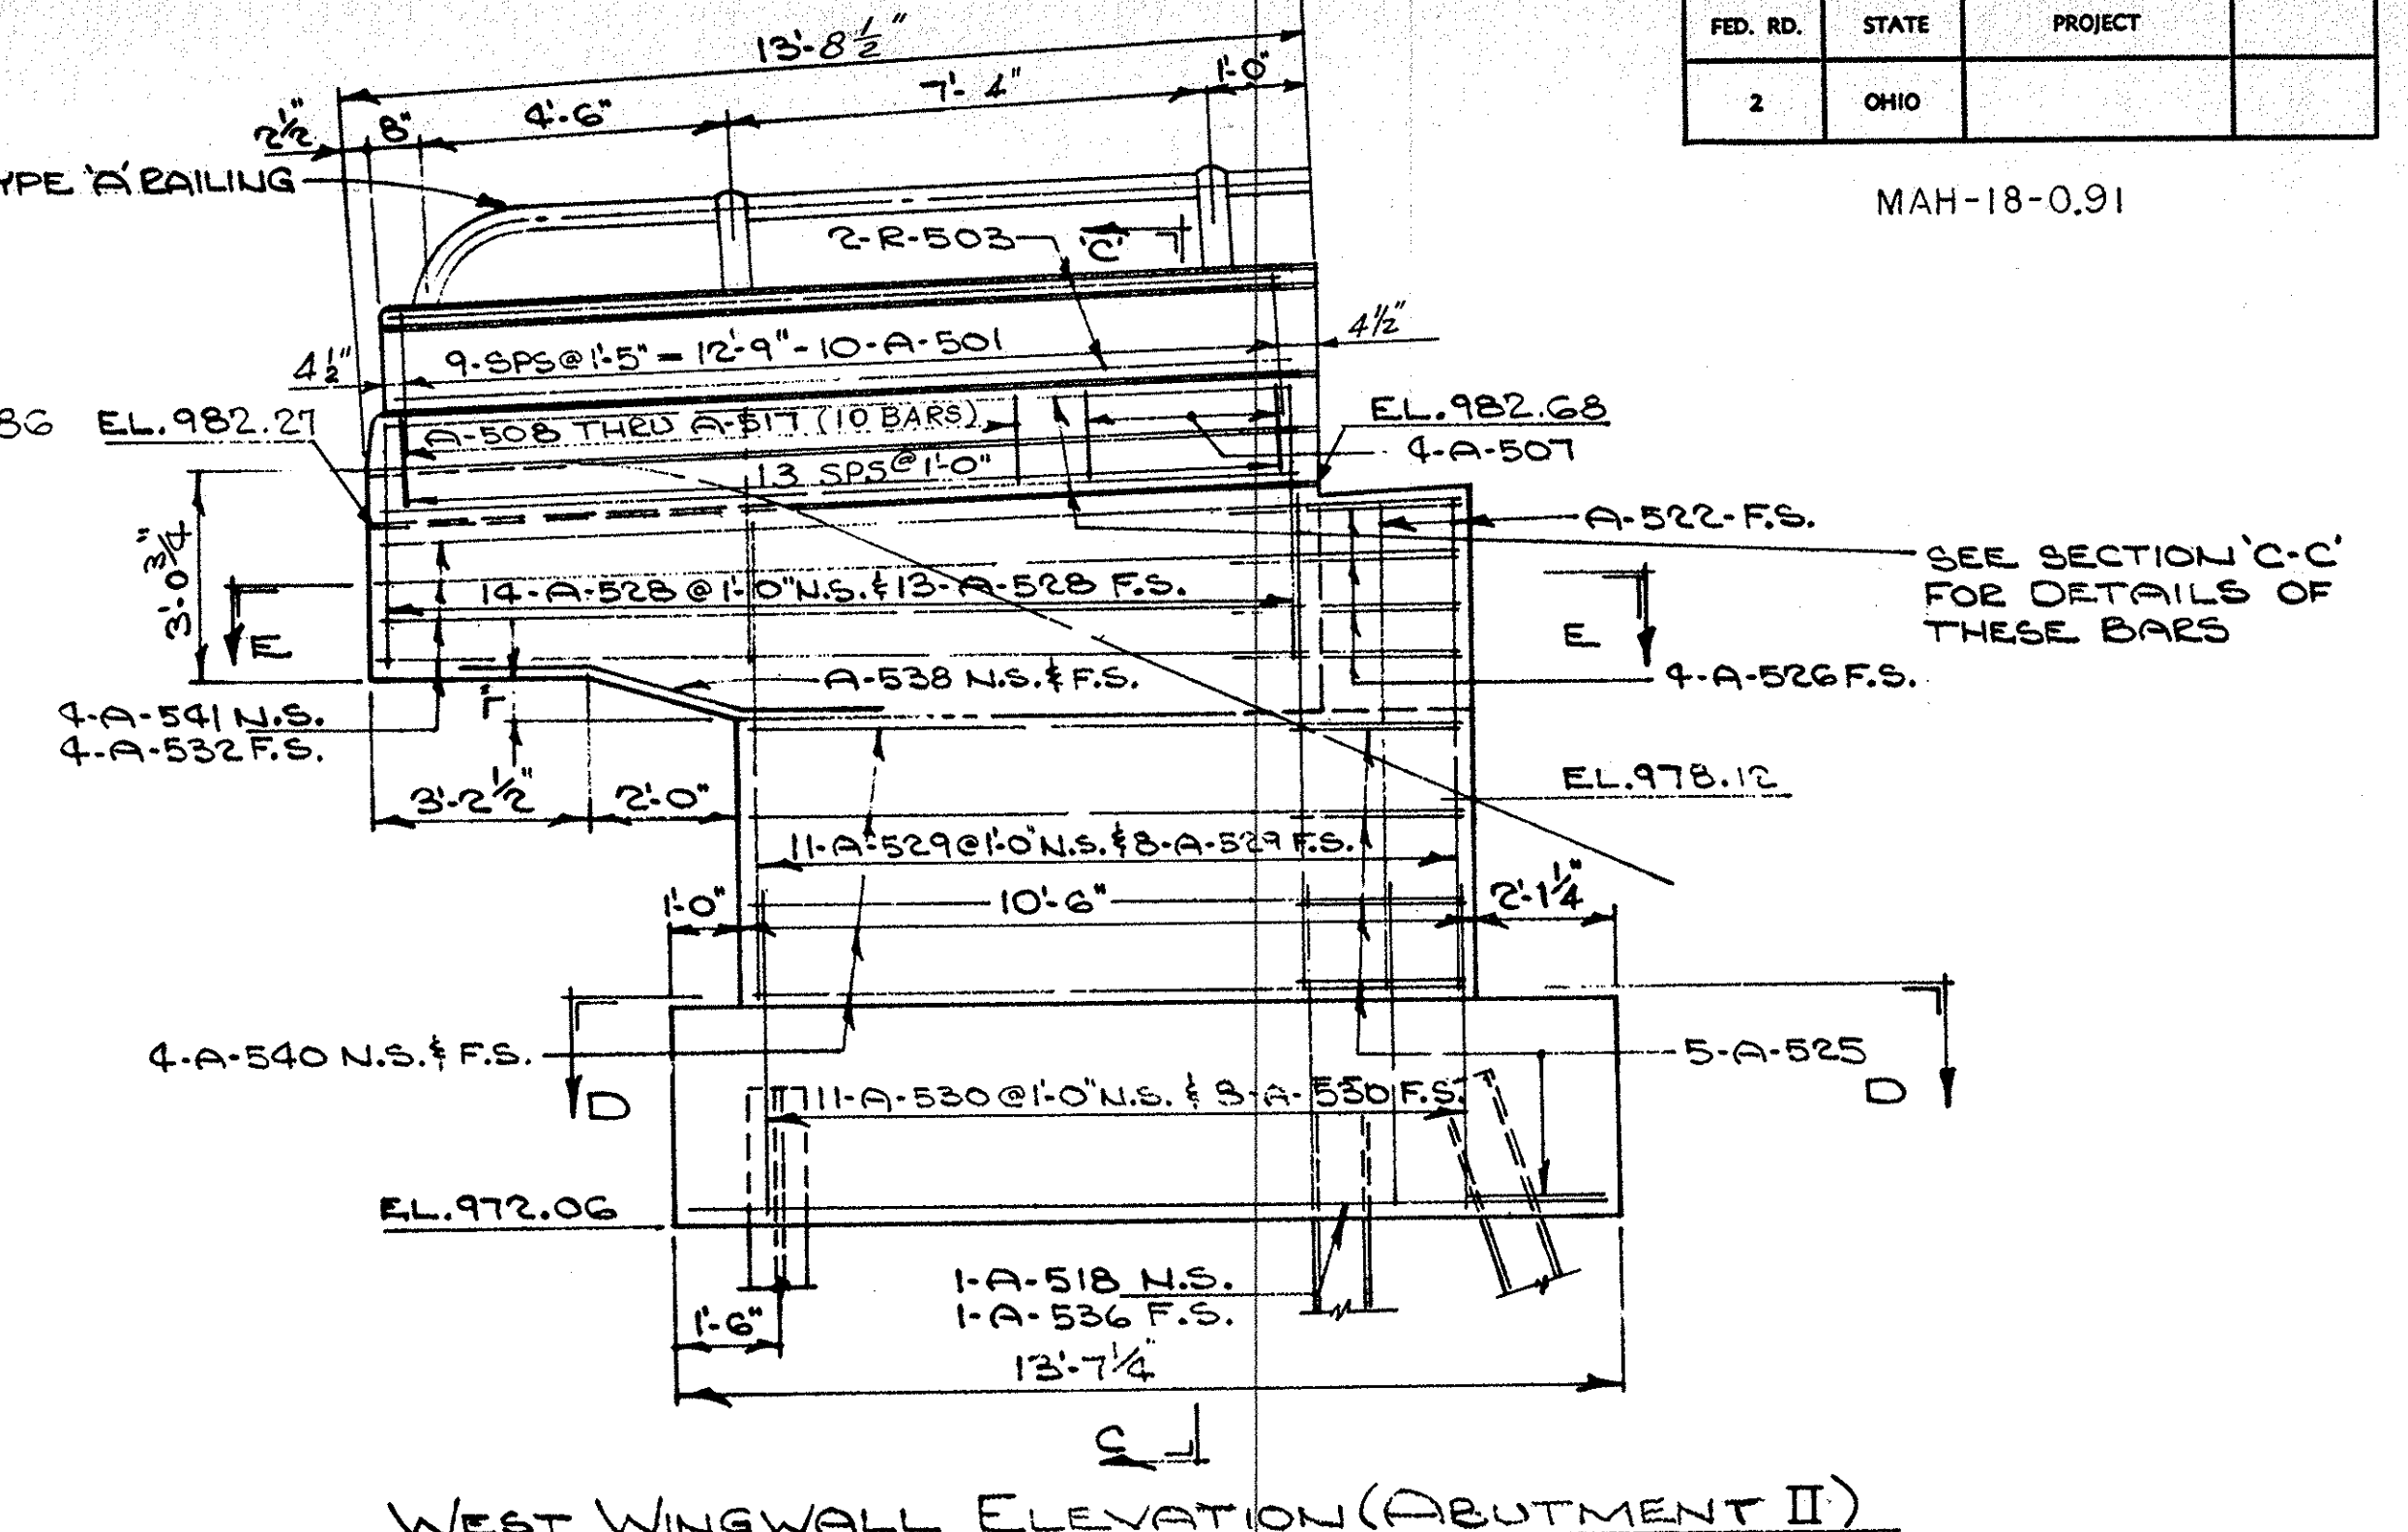 FED. RD. STATE PROJECT
2 OHIO
MAH-18-0.91
13'-8 1/2"
2 1/2" 8" 4'-6" 7'-4" 1'-0"
YPE 'A' RAILING
2-R-503 'C'
4 1/2" 9-SPS@1'-5"=12'-9"-10-A-501 4 1/2"
36 EL.982.27
A-508 THRU A-517 (10 BARS)
EL.982.68
13 SPS@1'-0"
4-A-507
A-522-F.S.
SEE SECTION 'C-C'
FOR DETAILS OF
THESE BARS
3'-0 3/4"
14-A-528@1'-0"N.S.&13-A-528 F.S.
E E
A-538 N.S.& F.S.
4-A-526 F.S.
4-A-541 N.S.
4-A-532 F.S.
3'-2 1/2" 2'-0"
EL.978.12
11-A-529@1'-0"N.S.&8-A-529 F.S.
1'-0" 10'-6" 2'-1 1/4"
4-A-540 N.S.& F.S.
5-A-525
D D
11-A-530@1'-0"N.S. & 8-A-530 F.S.
EL.972.06
1-A-518 N.S.
1-A-536 F.S.
1'-6"
13'-7 1/4"
C
WEST WINGWALL ELEVATION (ABUTMENT II)